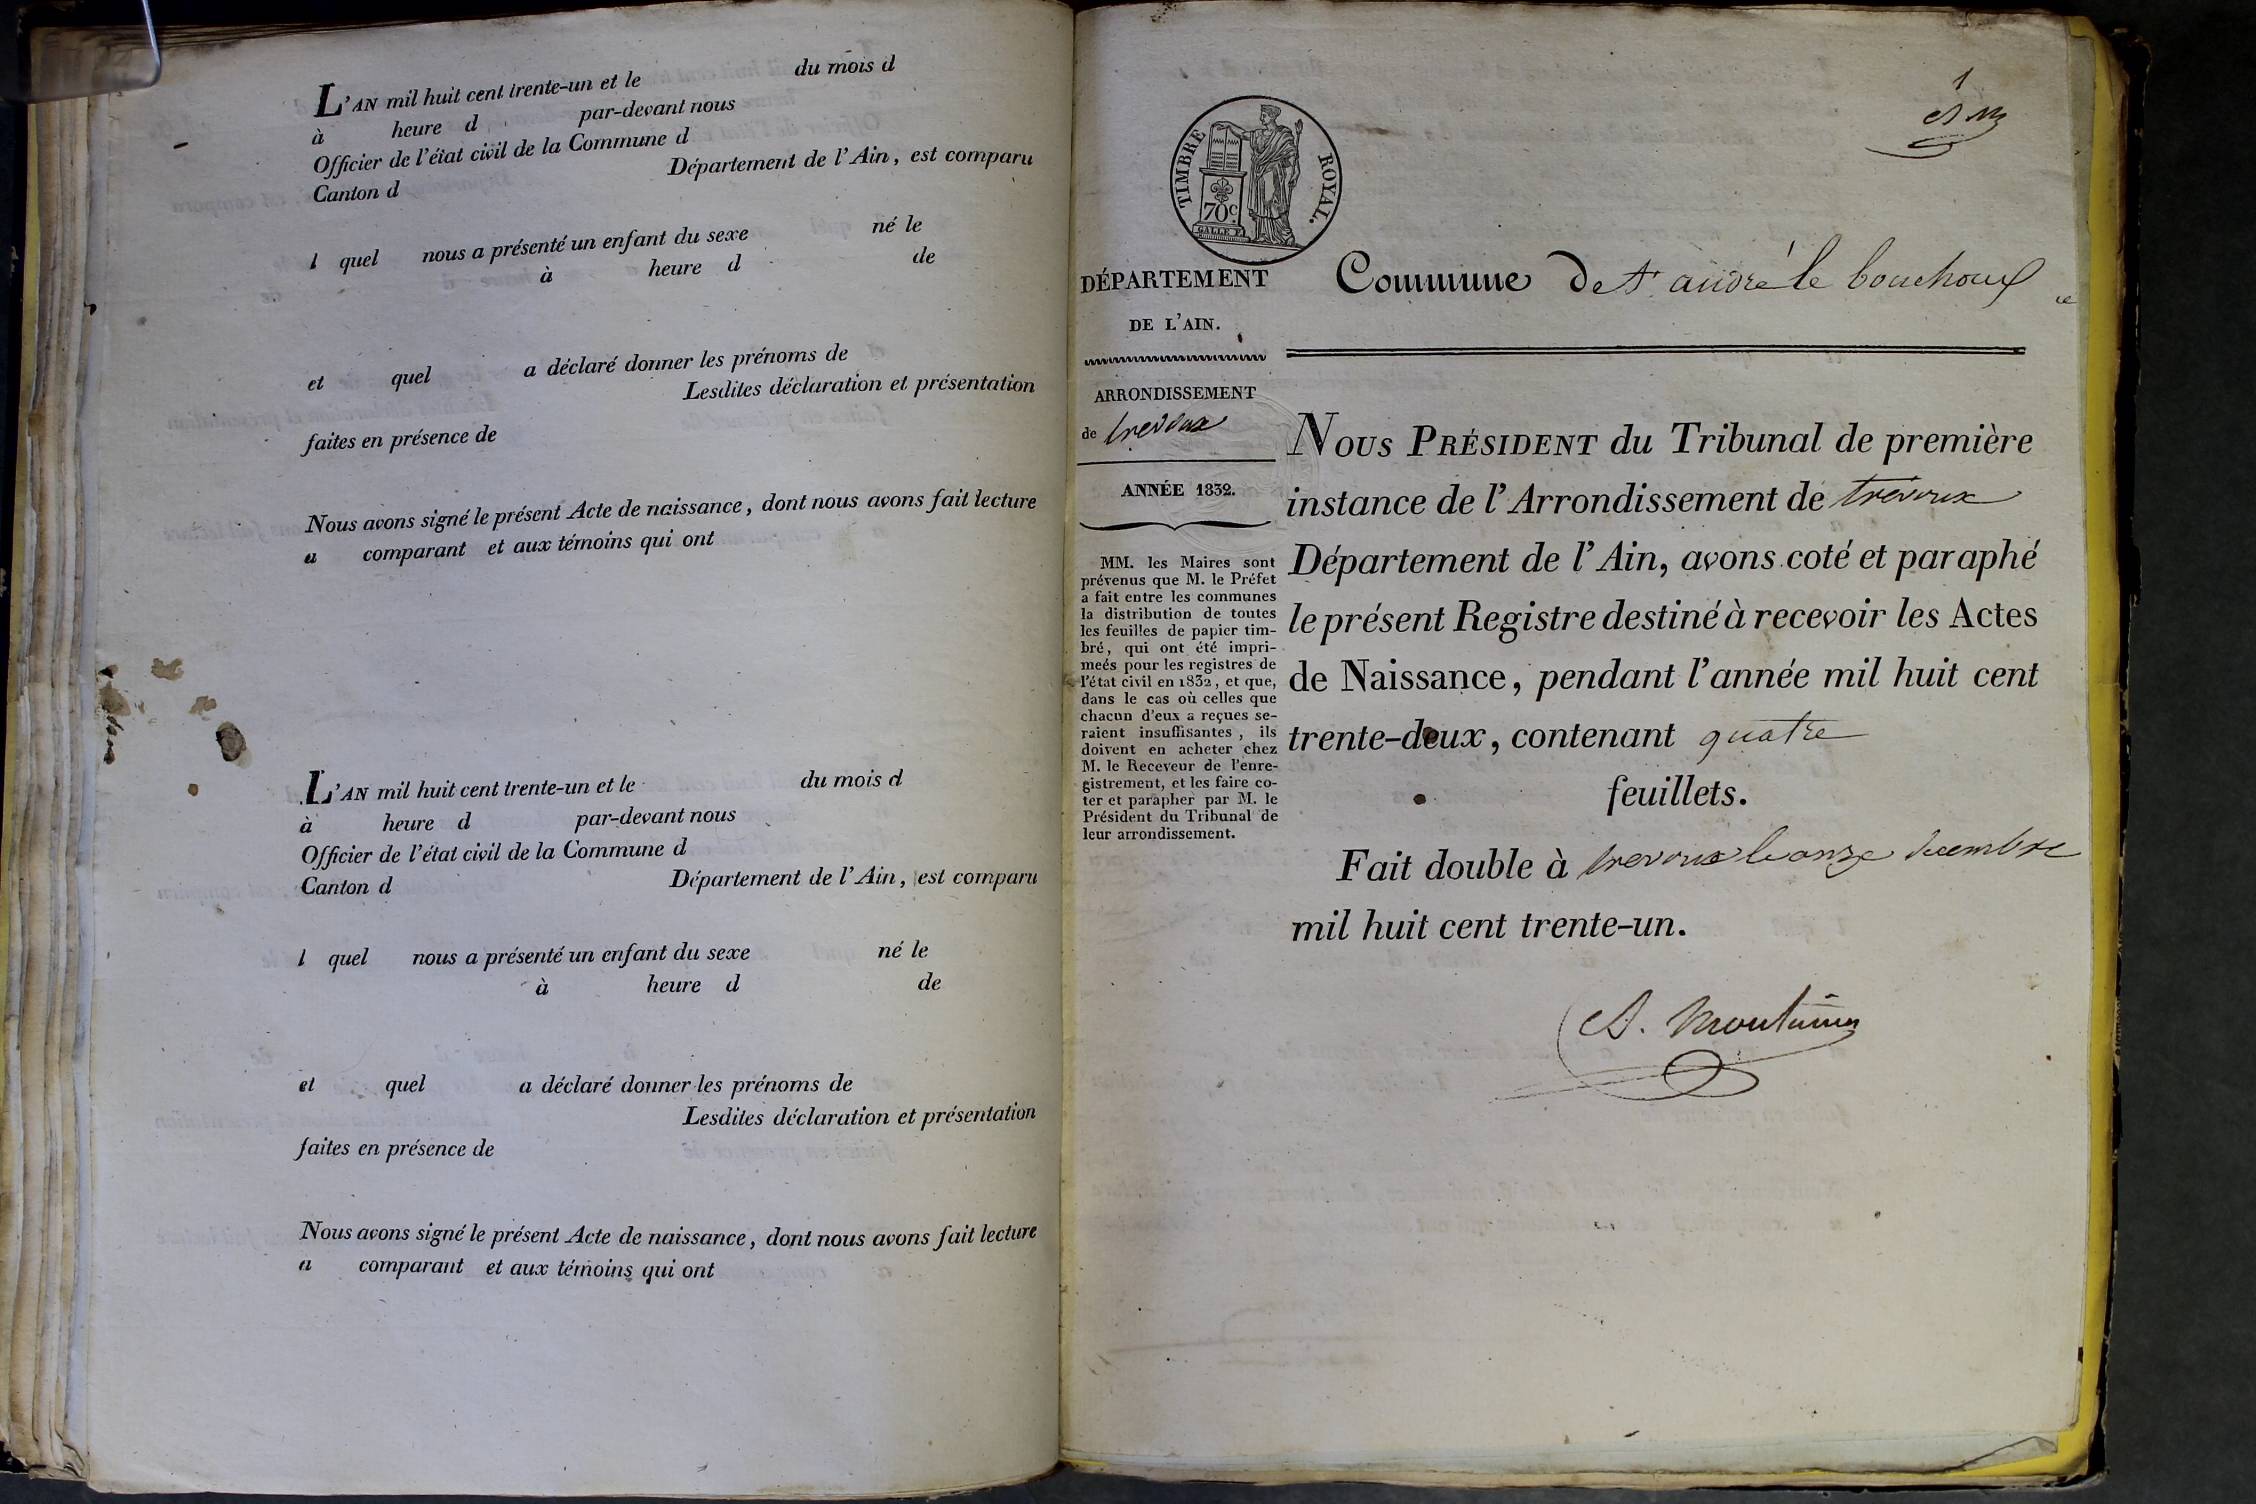 L'AN mil huit cent trente-un et le du mois d
à heure d par-devant nous
Officier de l'état civil de la Commune d
Canton d Département de l'Ain, est comparu
l quel nous a présenté un enfant du sexe né le
à heure d de
et quel a déclaré donner les prénoms de
Lesdites déclaration et présentation
faites en présence de
Nous avons signé le présent Acte de naissance, dont nous avons fait lecture
a comparant et aux témoins qui ont
L'AN mil huit cent trente-un et le du mois d
à heure d par-devant nous
Officier de l'état civil de la Commune d
Canton d Département de l'Ain, est comparu
l quel nous a présenté un enfant du sexe né le
à heure d de
et quel a déclaré donner les prénoms de
Lesdites déclaration et présentation
faites en présence de
Nous avons signé le présent Acte de naissance, dont nous avons fait lecture
a comparant et aux témoins qui ont
1
TIMBRE ROYAL.
70c
GALLE F.
DÉPARTEMENT
DE L'AIN.
ARRONDISSEMENT
de trevoux
ANNÉE 1832.
MM. les Maires sont
prévenus que M. le Préfet
a fait entre les communes
la distribution de toutes
les feuilles de papier tim-
bré, qui ont été impri-
meés pour les registres de
l'état civil en 1832, et que,
dans le cas où celles que
chacun d'eux a reçues se-
raient insuffisantes, ils
doivent en acheter chez
M. le Receveur de l'enre-
gistrement, et les faire co-
ter et parapher par M. le
Président du Tribunal de
leur arrondissement.
Commune de St andré le bouchoux
NOUS PRÉSIDENT du Tribunal de première
instance de l'Arrondissement de trévoux
Département de l'Ain, avons coté et paraphé
le présent Registre destiné à recevoir les Actes
de Naissance, pendant l'année mil huit cent
trente-deux, contenant quatre
feuillets.
Fait double à trevoux le onze decembre
mil huit cent trente-un.